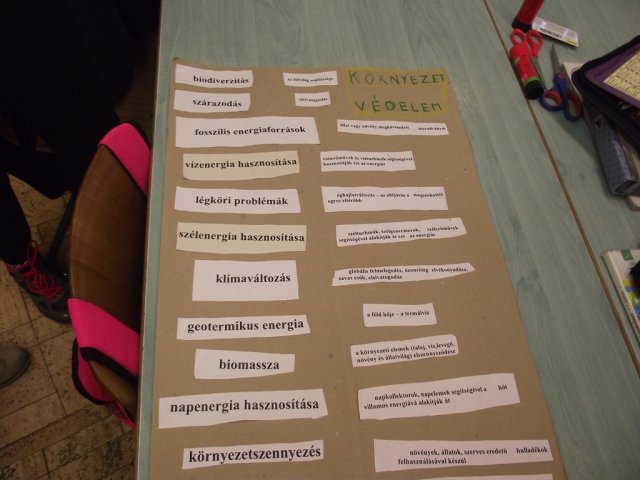 KÖRNYEZET
VÉDELEM
biodiverzitás
az élővilág sokfélesége
szárazodás
elsivatagodás
fosszilis energiaforrások
állat vagy növény megkövesedett maradványai
vízenergia hasznosítása
vízierőművek és vízturbinák segítségével
hasznosítják ezt az energiát
légköri problémák
éghajlatváltozás – az időjárás a megszokottól
egyre eltérőbb
szélenergia hasznosítása
szélturbinák, szélgenerátorok, szélerőművek
segítségével alakítják át ezt az energiát
klímaváltozás
globális felmelegedés, ózonréteg elvékonyodása,
savas esők, elsivatagodás
geotermikus energia
a föld hője – a termálvíz
biomassza
a környezeti elemek (talaj, víz,levegő,
növény és állatvilág) elszennyeződése
napenergia hasznosítása
napkollektorok, napelemek segítségével a hőt
villamos energiává alakítják át
környezetszennyezés
növények, állatok, szerves eredetű hulladékok
felhasználásával készül